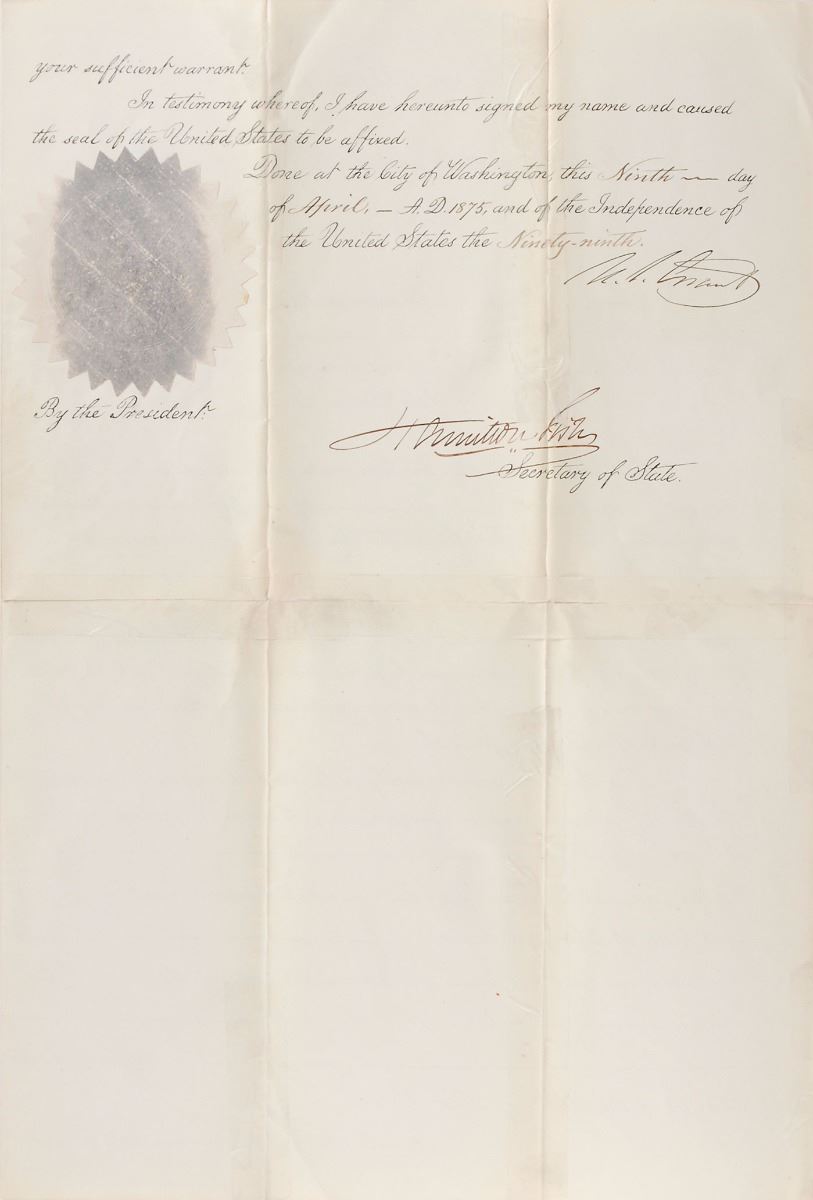 your sufficient warrant.
In testimony whereof, I have hereunto signed my name and caused
the seal of the United States to be affixed.
Done at the City of Washington, this Ninth — day
of April, — A.D. 1875, and of the Independence of
the United States the Ninety-ninth.
U. S. Grant
By the President:
Hamilton Fish
Secretary of State.